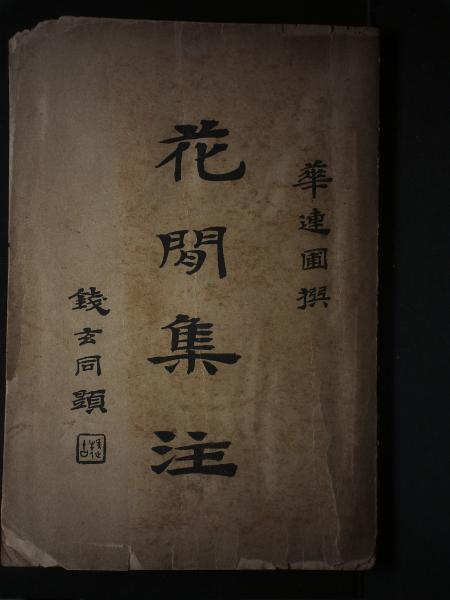 華連圃撰
花間集注
錢玄同題